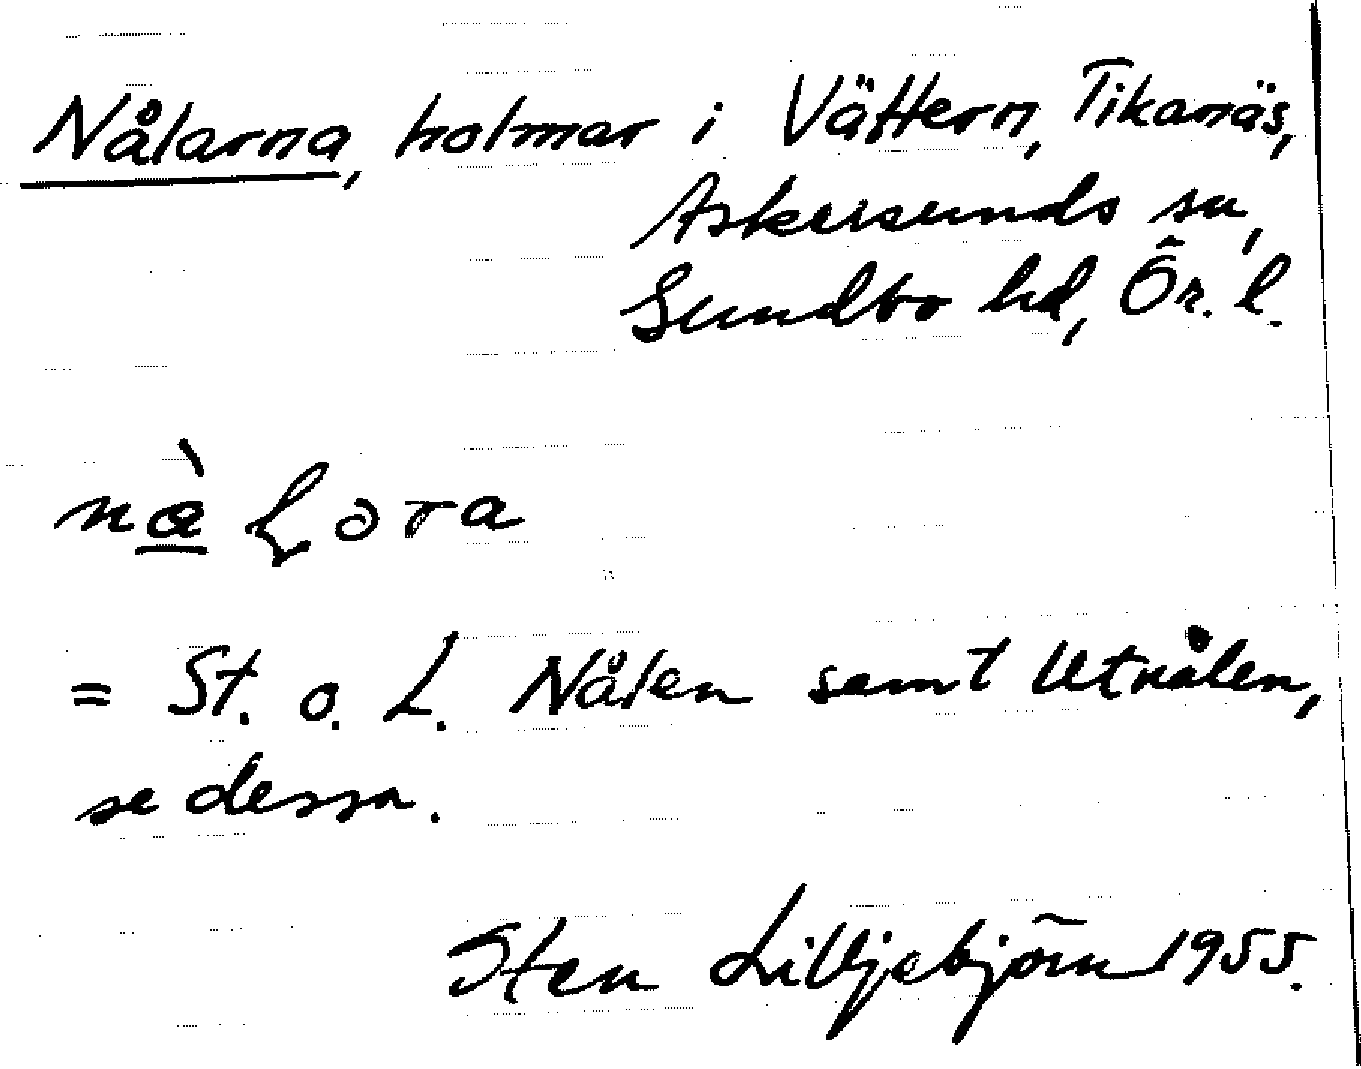 Nålarna, holmar i Vättern, Tikanäs,
Askersunds sn,
Sundbo hd, Ör. l.
nàꞎəra
= St. o. L. Nålen samt Utnålen,
se dessa.
Sten Lilljebjörn 1955.